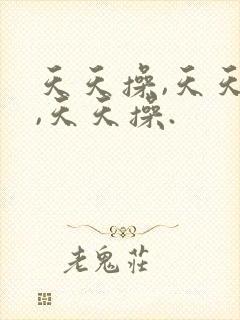 天天操,天天
,天天操.
老鬼莊